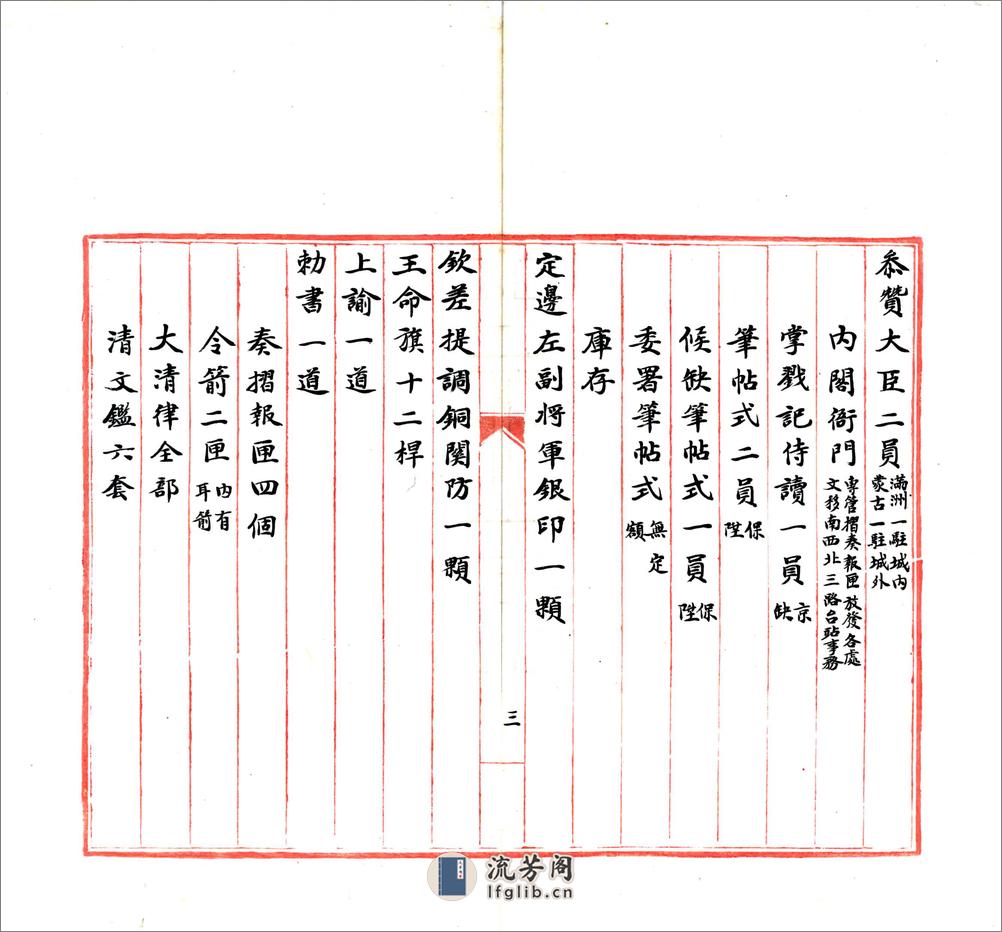 叅贊大臣二員 滿洲一駐城内 蒙古一駐城外
内閣衙門 專管摺奏報匣放發各處 文移南西北三路台站事務
掌戳記侍讀一員 京缺
筆帖式二員 保陞
候缺筆帖式一員 保陞
委署筆帖式 無定額
庫存
定邊左副將軍銀印一顆
三
欽差提調銅関防一顆
王命旗十二桿
上諭一道
勅書一道
奏摺報匣四個
令箭二匣 内有耳箭
大清律全部
清文鑑六套
流芳阁
lfglib.cn